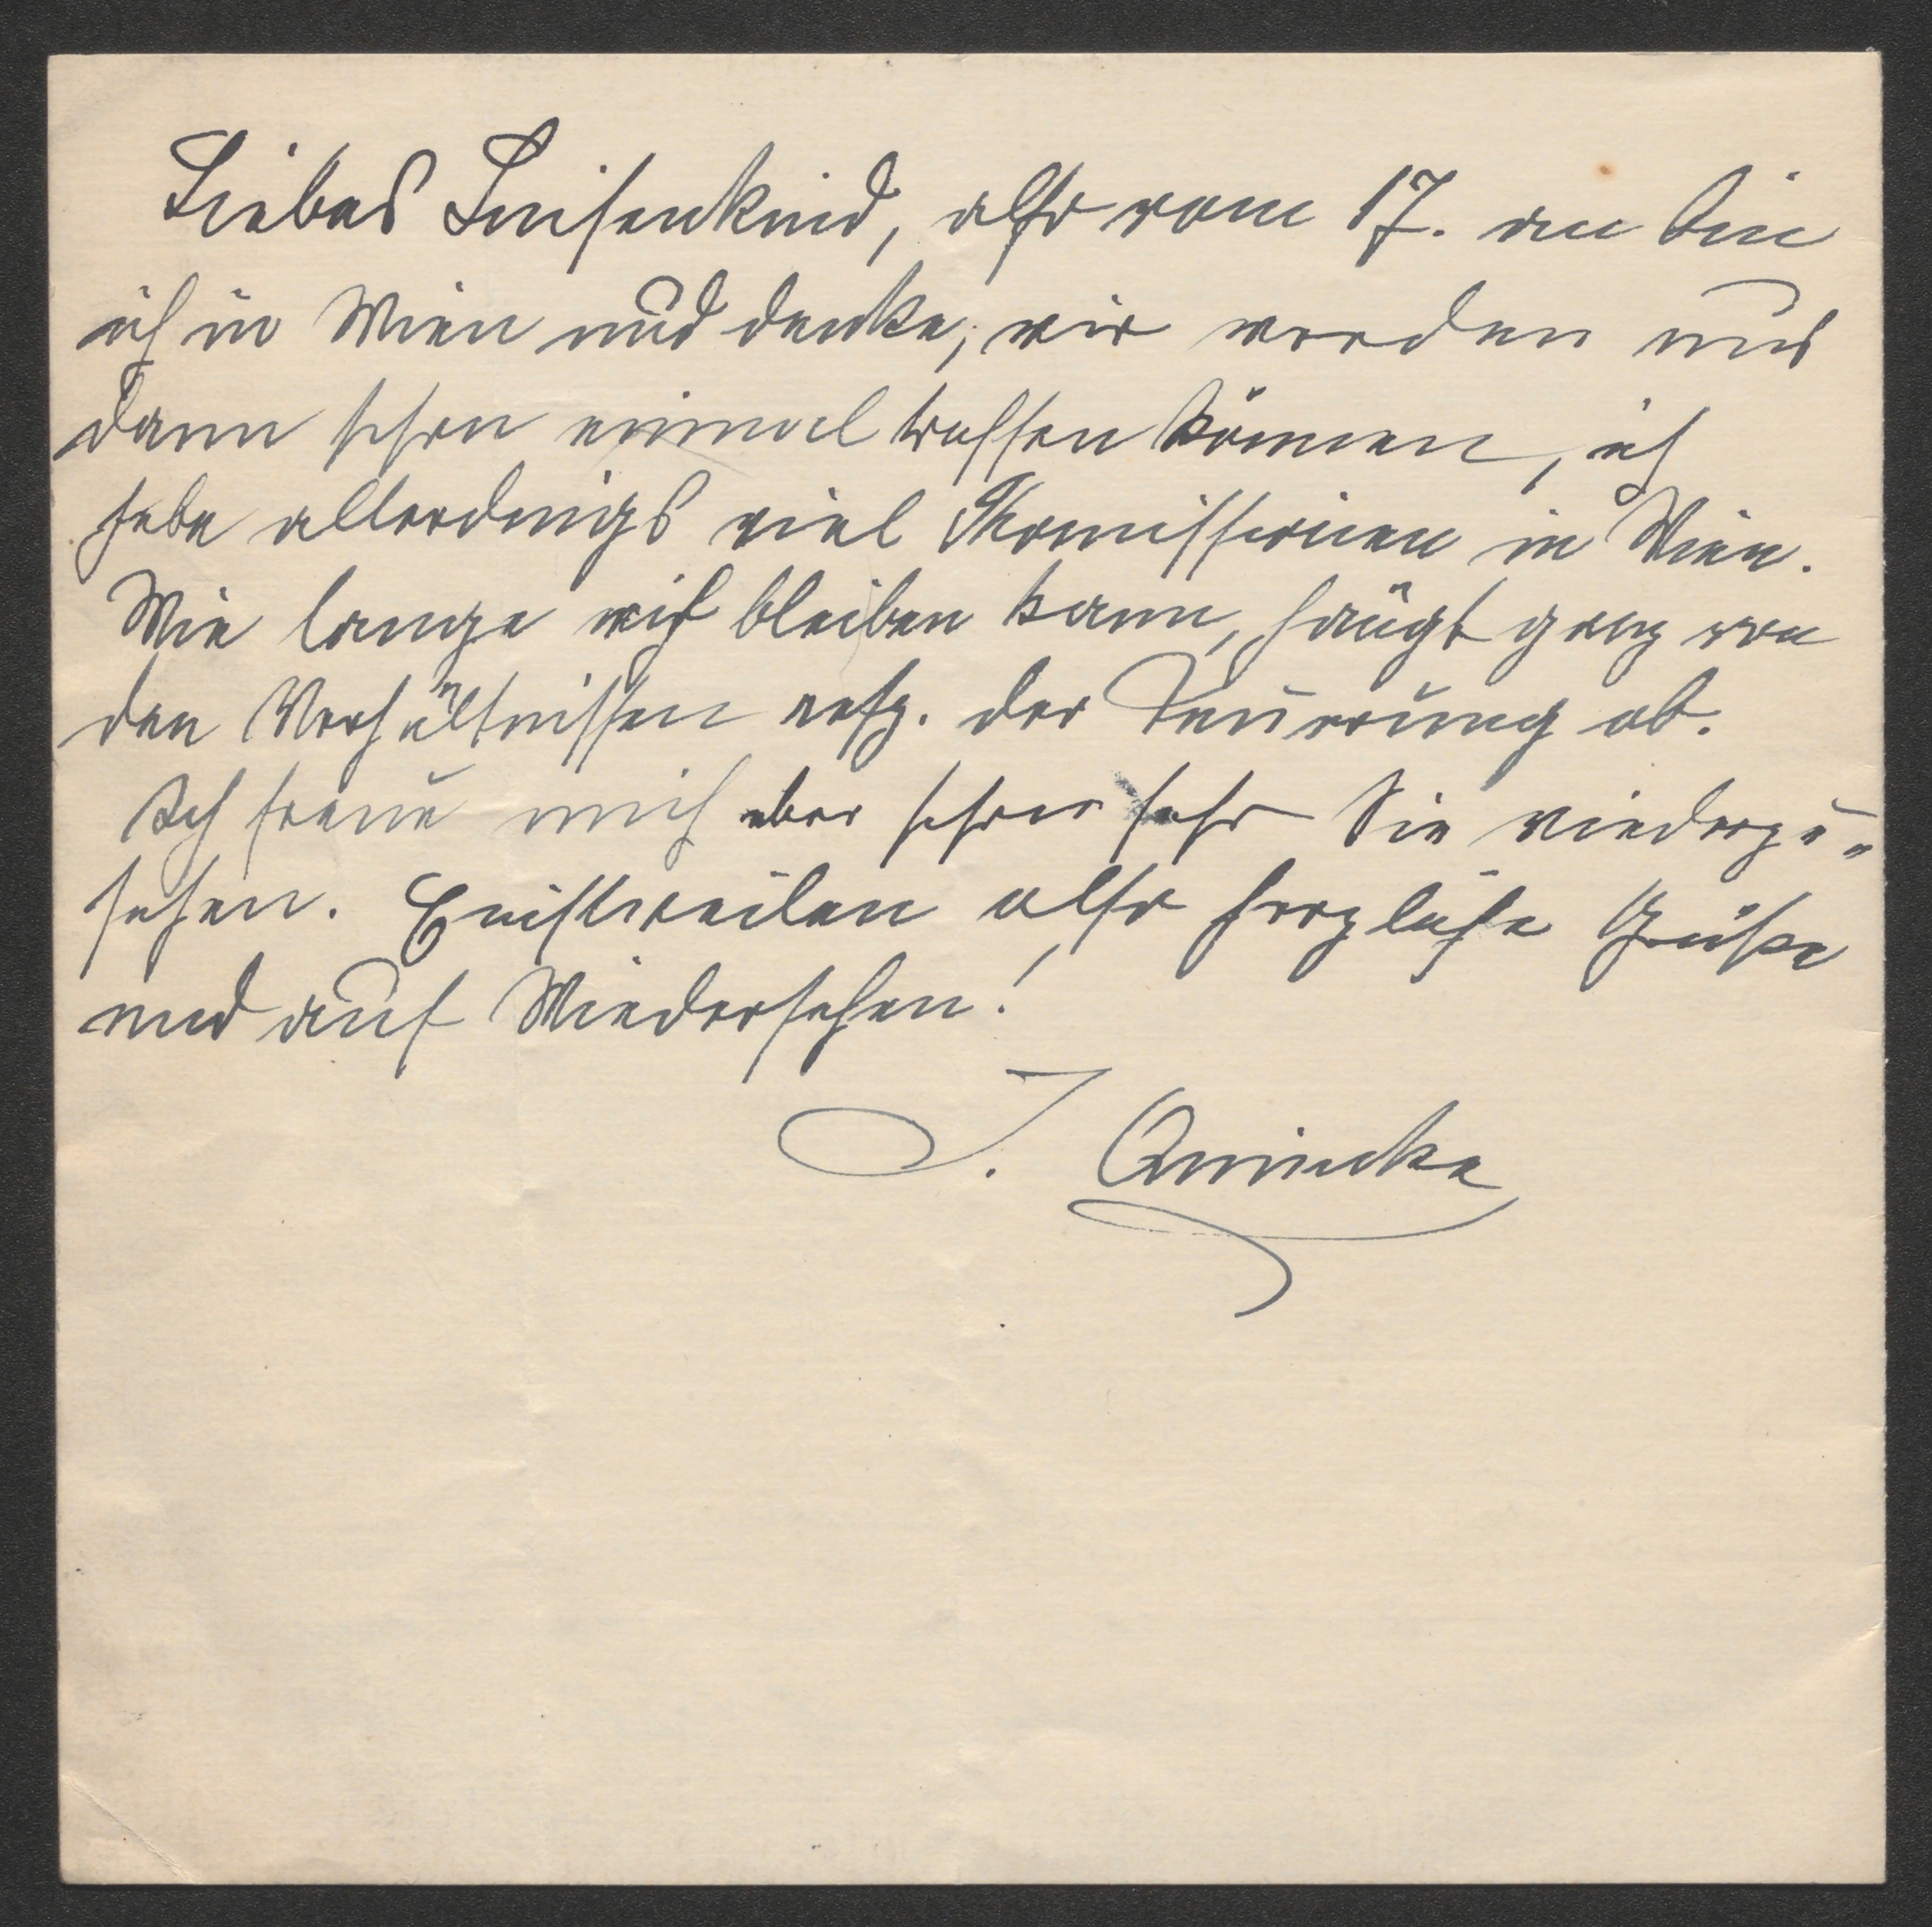 Liebes Luisenkind, also vom 17. an bin
ich in Wien und denke, wir werden uns
dann schon einmal treffen können, ich
habe allerdings viel Kommissionen in Wien.
Wie lange ich bleiben kann, hängt ganz von
den Verhältnissen resp. der Teuerung ab.
Ich freue mich aber schon sehr Sie wiederzu-
sehen. Einstweilen also herzliche Grüße
und auf Wiedersehen!
J. Quincke